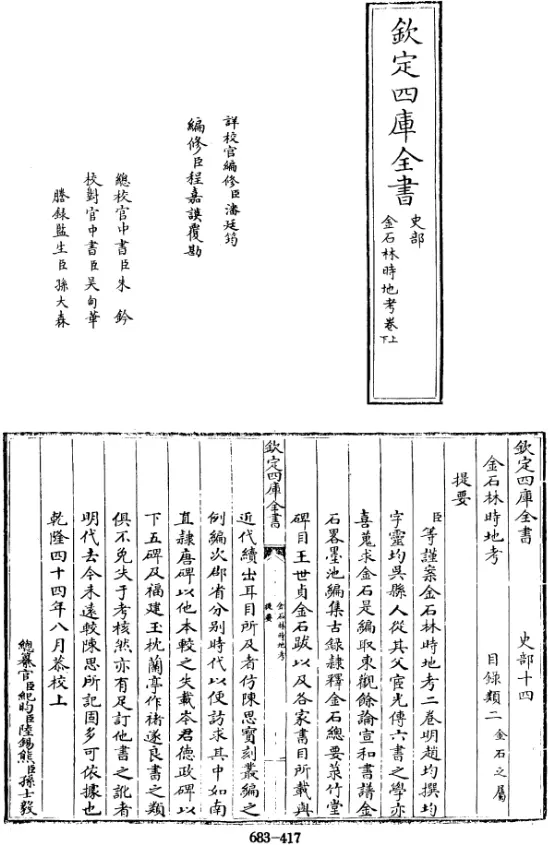 欽定四庫全書
史部
金石林時地考卷上下
詳校官編修臣潘廷筠
編修臣程嘉謨覆勘
總校官中書臣朱鈐
校對官中書臣吳甸華
謄錄監生臣孫大森
欽定四庫全書
史部十四
金石林時地考
目錄類二金石之屬
提要
臣等謹案金石林時地考二卷明趙均撰均
字靈均吳縣人從其父宧光傳六書之學亦
喜蒐求金石是編取東觀餘論宣和書譜金
石畧墨池編集古録隸釋金石總要菉竹堂
碑目王世貞金石跋以及各家書目所載與
欽定四庫全書
金石林時地考
提要
近代續出耳目所及者仿陳思寶刻叢編之
例編次郡省分別時代以便訪求其中如南
直隸唐碑以他本較之失載岑君德政碑以
下五碑及福建玉枕蘭亭作褚遂良書之類
俱不免失于考核然亦有足訂他書之訛者
明代去今未遠較陳思所記固多可依據也
乾隆四十四年八月恭校上
總纂官臣紀昀臣陸錫熊臣孫士毅
683-417